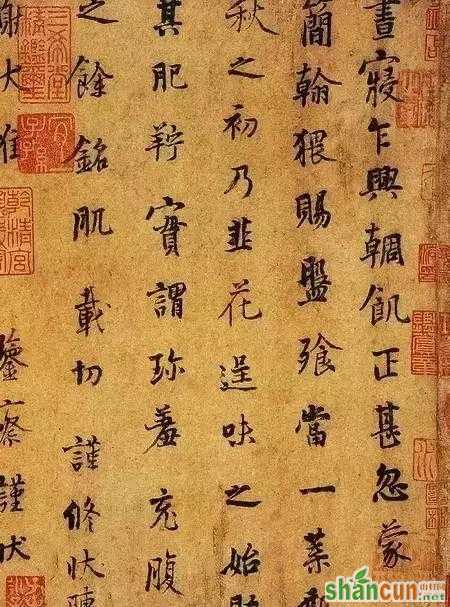 晝寢乍興輖飢正甚忽蒙
簡翰猥賜盤飧當一葉
秋之初乃韭花逞味之始助
其肥羜實謂珍羞充腹
之餘銘肌載切謹修狀陳
謝伏惟
鑒察謹狀
三希堂精鑑璽
宜子孫
shancun
山村网
.net